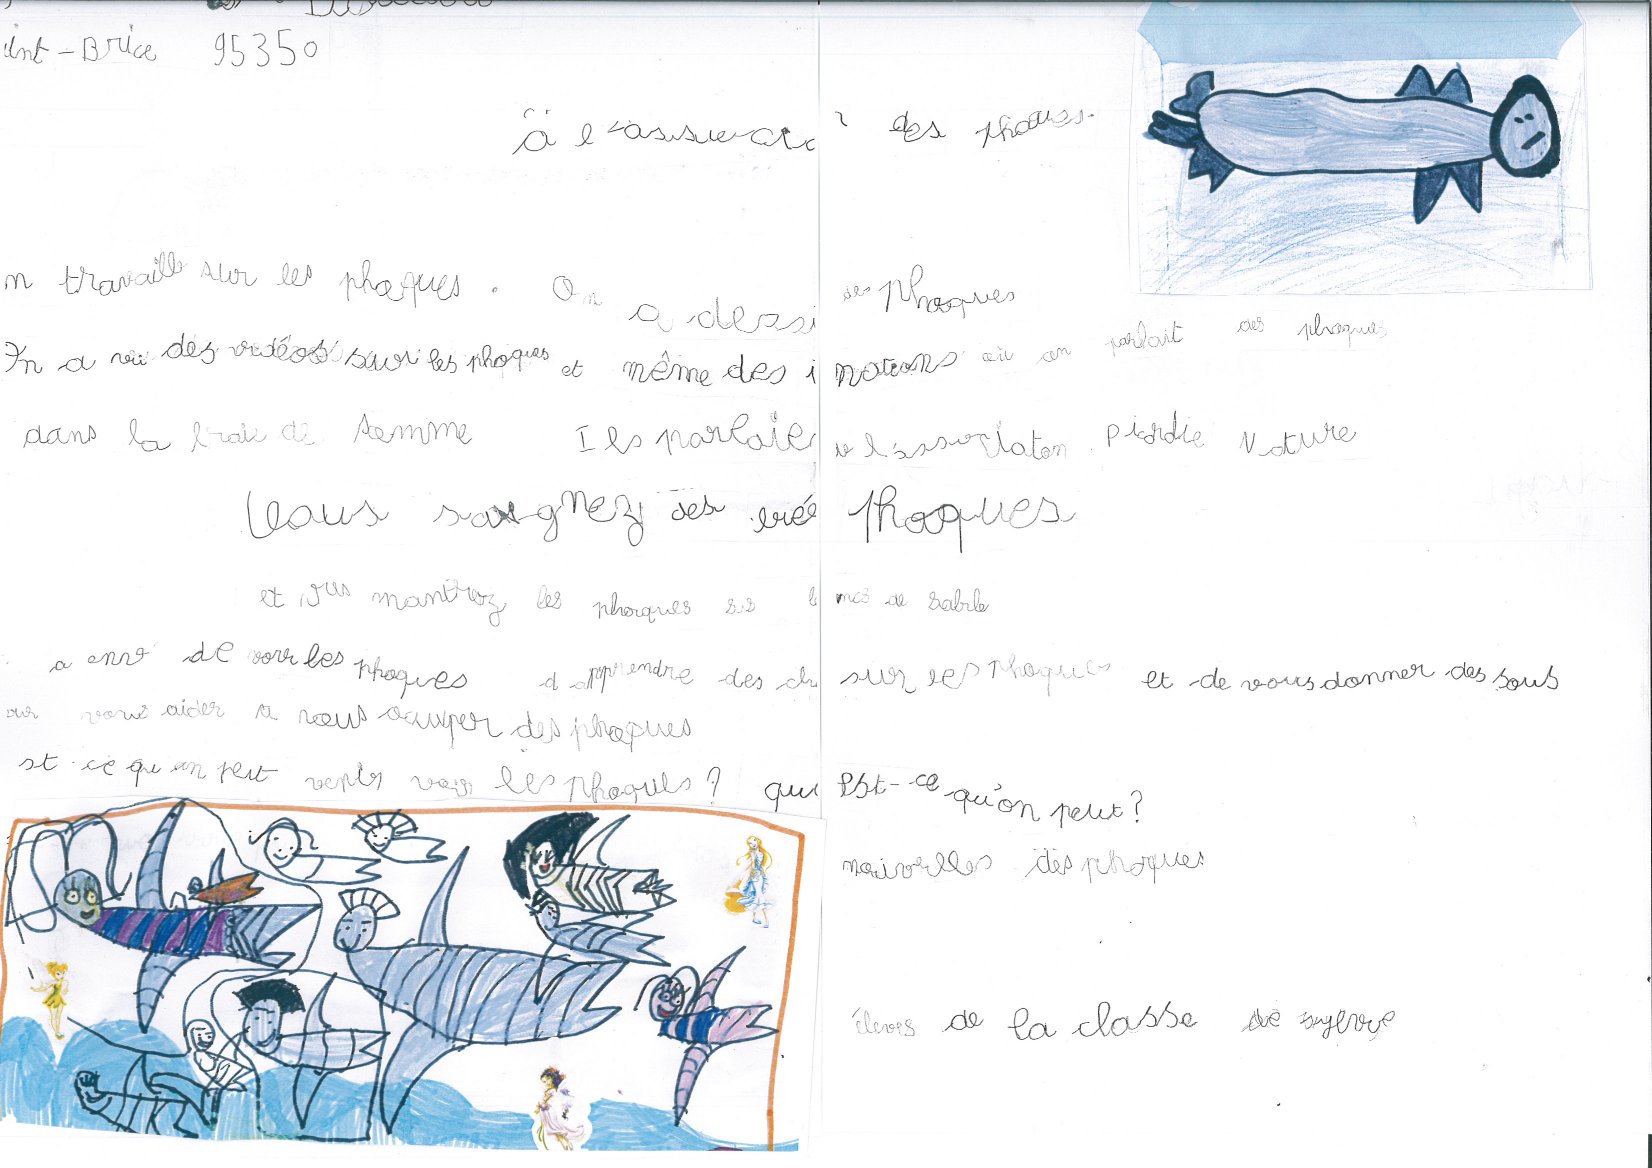 int-Brice 95350
à l'associatio des phoques
n travaille sur les phoques. On a dessi des phoques
On a vu des vidéos sur les phoques et même des i mations où on parlait des phoques
dans la baie de somme Ils parlaie l'association Picardie Nature
Vous soignez des bébé phoques
et vous montrez les phoques sur b ncs de sable
a envi de voir les phoques d apprendre des ch sur les phoques et de vous donner des sous
our vous aider a vous ocuper des phoques
st-ce qu on peut venir voir les phoques? qu Est-ce qu'on peut?
nouvelles des phoques
élèves de la classe de sylvie